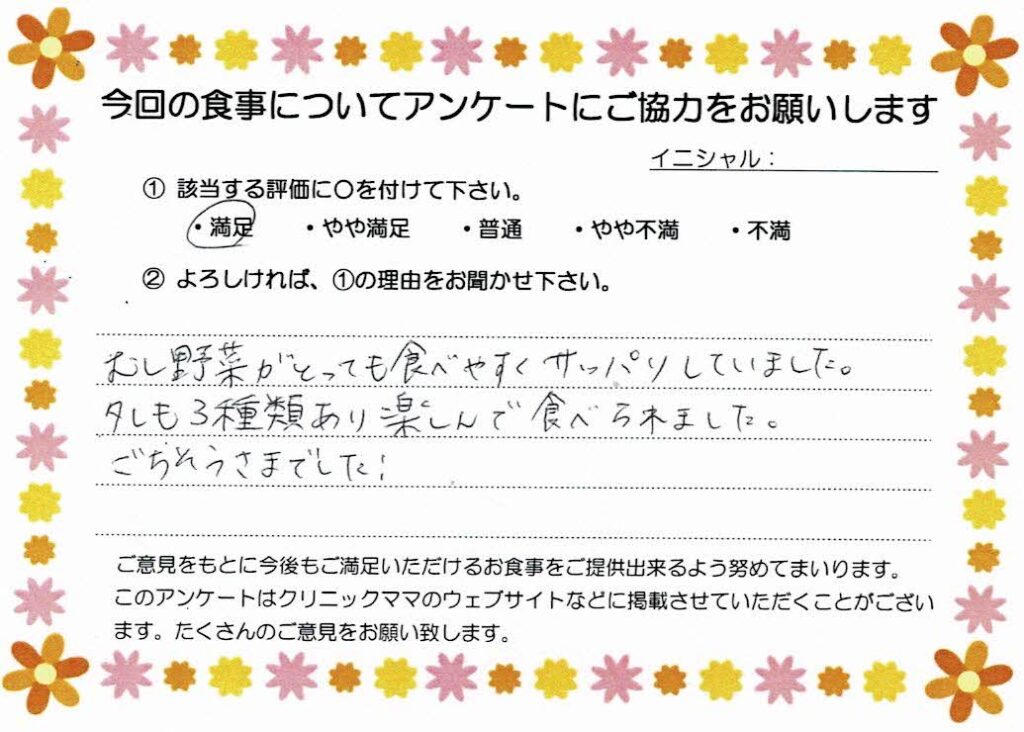 今回の食事についてアンケートにご協力をお願いします
イニシャル：
① 該当する評価に〇を付けて下さい。
・満足 ・やや満足 ・普通 ・やや不満 ・不満
② よろしければ、①の理由をお聞かせ下さい。
むし野菜がとっても食べやすくサッパリしていました。
タレも3種類あり楽しんで食べられました。
ごちそうさまでした!
ご意見をもとに今後もご満足いただけるお食事をご提供出来るよう努めてまいります。
このアンケートはクリニックママのウェブサイトなどに掲載させていただくことがござい
ます。たくさんのご意見をお願い致します。